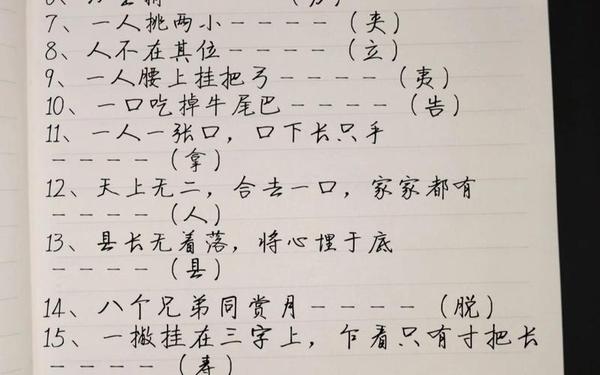 7、一人挑两小----（夹）
8、人不在其位----（立）
9、一人腰上挂把弓----（夷）
10、一口吃掉牛尾巴----（告）
11、一人一张口，口下长只手
----（拿）
12、天上无二，合去一口，家家都有
----（人）
13、县长无着落，将心埋于底
----（县）
14、八个兄弟同赏月----（脱）
15、一撇挂在三字上，乍看只有寸把长
----（寿）